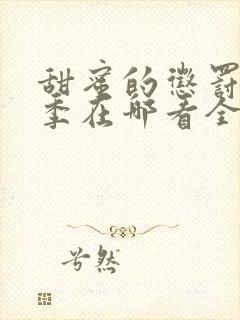 甜蜜的惩罚
季在哪看全
兮然